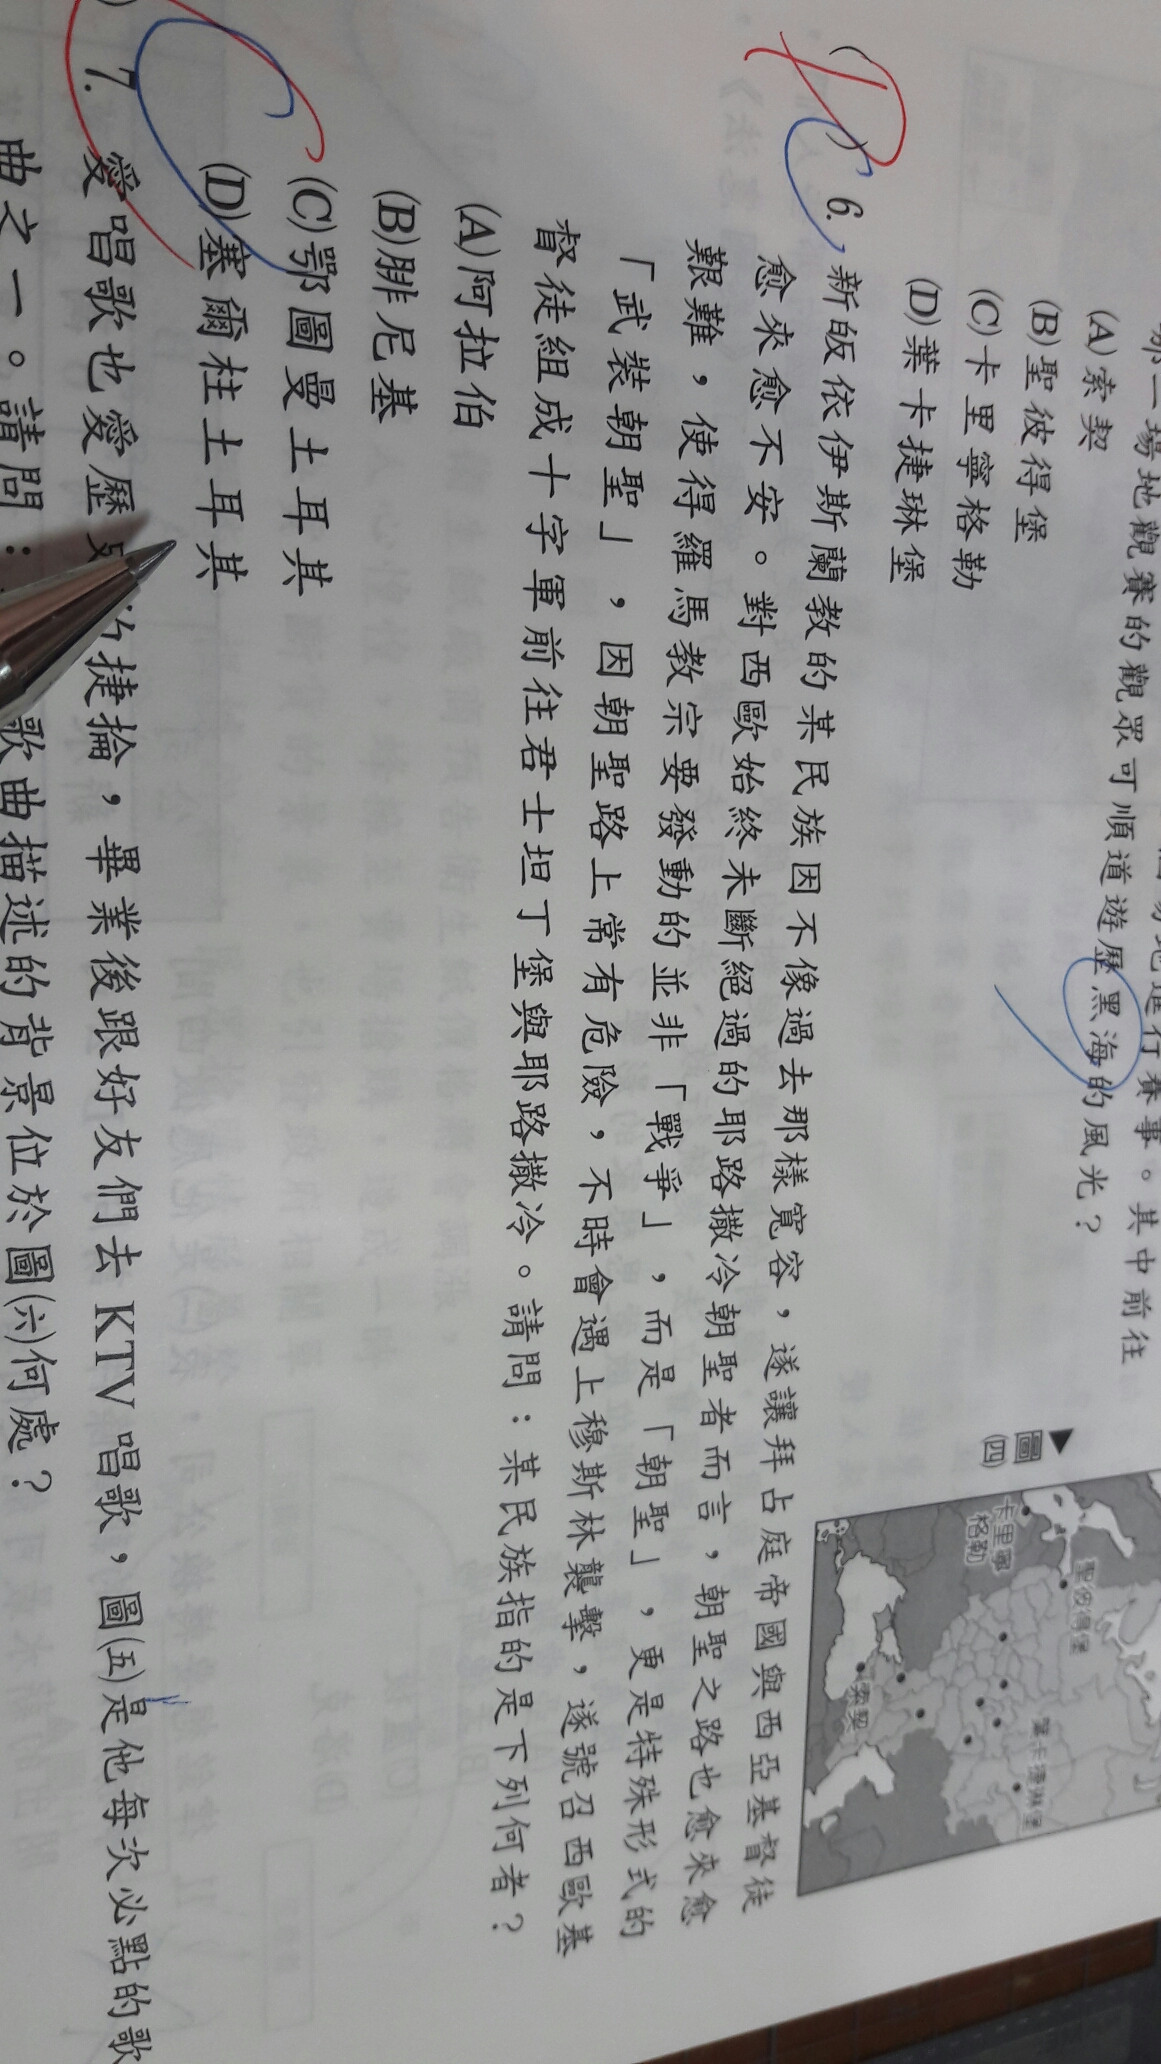 場地觀賽的觀眾可順道遊歷黑海的風光？
(A)索契
(B)聖彼得堡
(C)卡里寧格勒
(D)葉卡捷琳堡
▲圖(四)
卡里寧格勒
聖彼得堡
葉卡捷琳堡
索契
6. 新皈依伊斯蘭教的某民族因不像過去那樣寬容，遂讓拜占庭帝國與西亞基督徒
愈來愈不安。對西歐始終未斷絕過的耶路撒冷朝聖者而言，朝聖之路也愈來愈
艱難，使得羅馬教宗要發動的並非「戰爭」，而是「朝聖」，更是特殊形式的
「武裝朝聖」，因朝聖路上常有危險，不時會遇上穆斯林襲擊，遂號召西歐基
督徒組成十字軍前往君士坦丁堡與耶路撒冷。請問：某民族指的是下列何者？
(A)阿拉伯
(B)腓尼基
(C)鄂圖曼土耳其
(D)塞爾柱土耳其
7. 愛唱歌也愛歷 捷掄，畢業後跟好友們去 KTV 唱歌，圖(五)是他每次必點的歌
曲之一。請問： 歌曲描述的背景位於圖(六)何處？